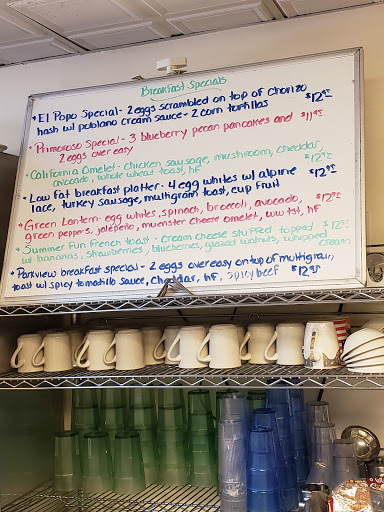 Breakfast Specials
• El Popo Special - 2 eggs scrambled on top of Chorizo $12.95
hash w/ poblano cream sauce - 2 corn tortillas
• Primoroso Special - 3 blueberry pecan pancakes and $11.95
2 eggs over easy
• California Omelet - chicken sausage, mushroom, cheddar,
avocado, whole wheat toast, hf $12.95
• Low fat breakfast platter - 4 egg whites w/ alpine $12.95
lace, turkey sausage, multigrain toast, cup fruit
• Green Lantern - egg whites, spinach, broccoli, avocado,
green peppers, jalepeño, muenster cheese omelet, ww tst, hf
• Summer Fun French toast - cream cheese stuffed topped
w/ bananas, strawberries, blueberries, glazed walnuts, whipped cream
• Parkview breakfast special - 2 eggs over easy on top of multigrain
toast w/ spicy tomatillo sauce, cheddar, hf, spicy beef $12.95